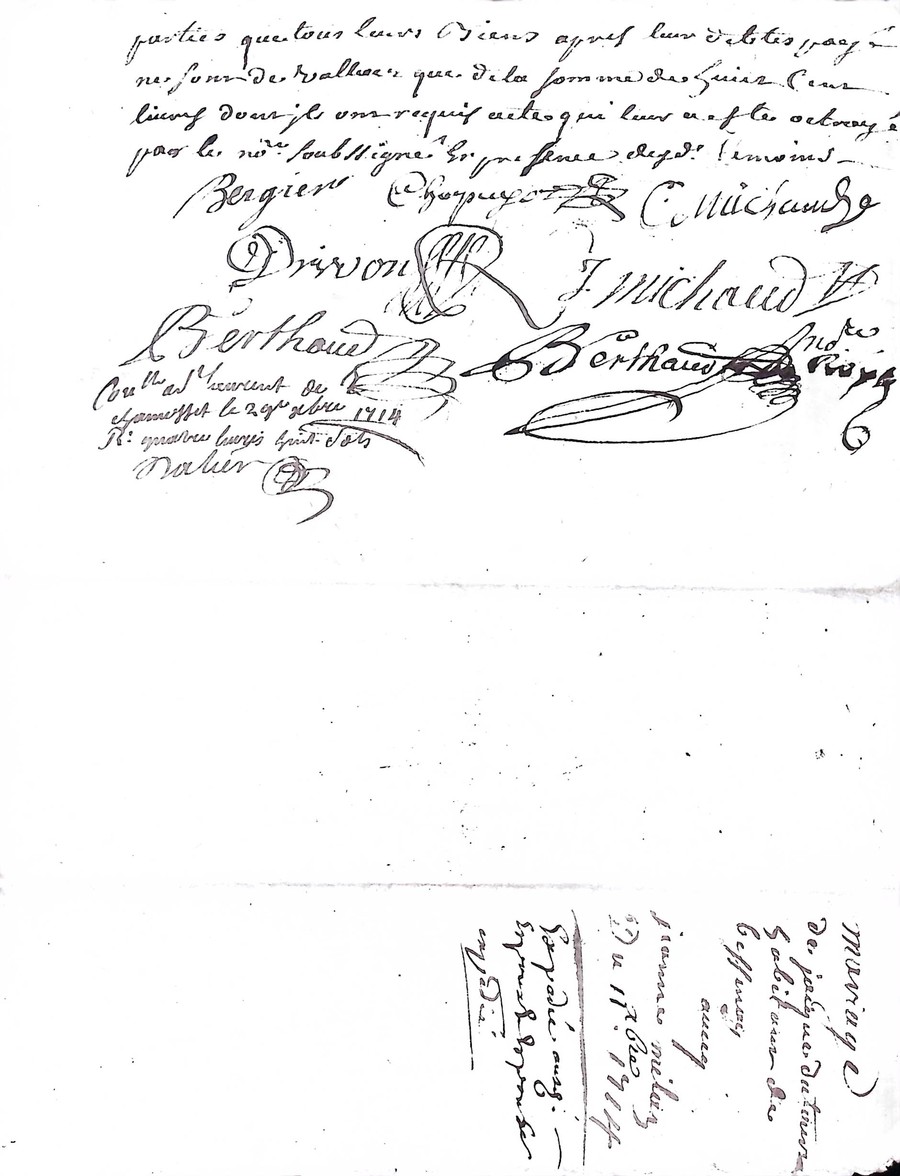 parties que tous leurs Biens apres leur debtes payé
ne sont de valleur que de la somme de huict Cent
livres dont ils ont requis acte qui leur a este octroyé
par le no.re soubssigné En presence desd. temoins
Bergier C. Michaud
Drivon J michaud
Berthaud Berthaud
Con.lle a St laurent de
chamosset le 29e xbre 1714
R: quatre livres huit sols
mariage
de jacque
habitant de
bessenay
avecq
jeanne
Du 11 xbre 1714
Expédié aux
Espoux & Epouse
expédié